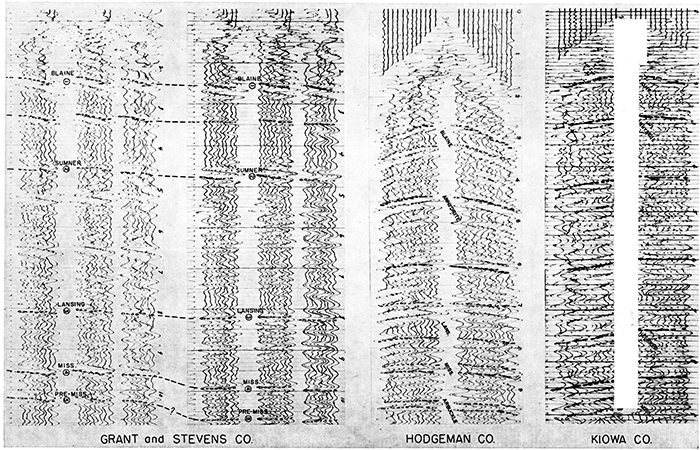 BLAINE
BLAINE
SUMNER
SUMNER
LANSING
LANSING
MISS.
MISS.
PRE-MISS.
PRE-MISS.
BLAINE
LANS.
MISS.
GRANT and STEVENS CO.
HODGEMAN CO.
KIOWA CO.